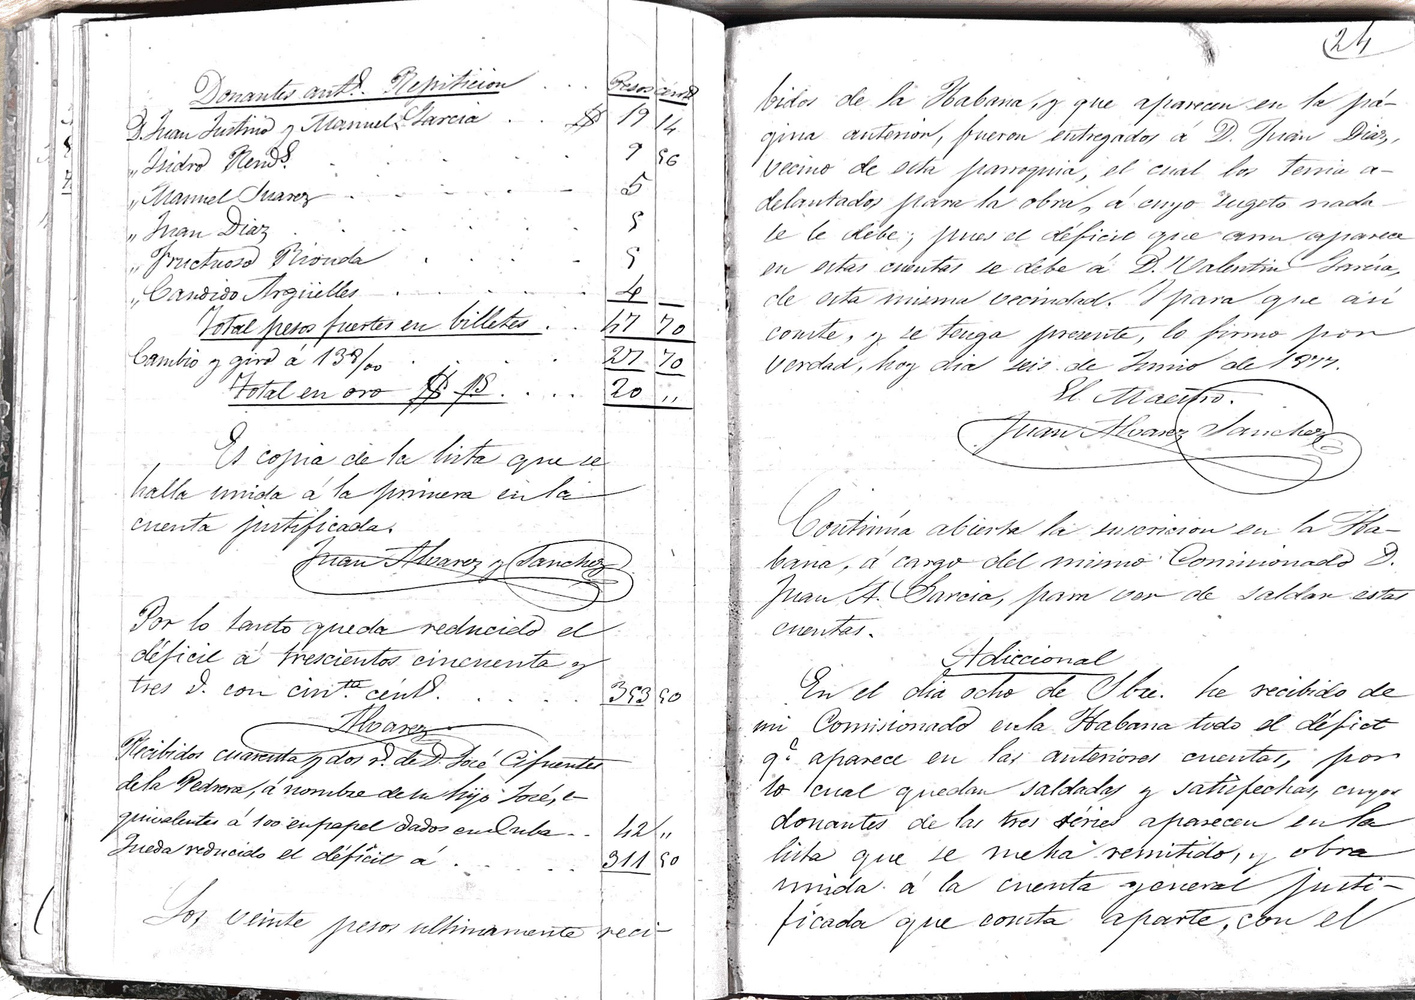 Donantes antd. Repiticion . . . Pesos centd
D. Juan Justino y Manuel Garcia . . . $ 19 14
„ Isidro Rend. . . . . . 9 56
„ Manuel Suarez . . . . . 5
„ Juan Diaz . . . . . 5
„ Fructuoso Rionda . . . . 5
„ Candido Argüelles . . . . 4
Total pesos fuertes en billetes . . 47 70
Cambio y giro á 138/00 . . . . 27 70
Total en oro $ ps . . . . 20 „
Es copia de la lista que se
halla unida á la primera en la
cuenta justificada.
Juan Alvarez y Sanchez
Por lo tanto queda reducido el
déficil á trescientos cincuenta y
tres d. con cinta. céntd. . . . . 353 50
Alvarez
Recibidos cuarenta y dos r.d. de D. José Cifuentes
de la Pedrera, á nombre de su hijo José, e-
quivalentes á 100 en papel dados en Cuba . . 42 „
Queda reducido el déficil á . . . . 311 50
Los veinte pesos ultimamente reci-
24
bidos de la Habana, y que aparecen en la pá-
gina anterior, fueron entregados á D. Juan Diaz,
vecino de esta parroquia, el cual los tenia a-
delantados para la obra, á cuyo sugeto nada
se le debe; pues el déficil que aun aparece
en estas cuentas se débe á D. Valentin Garcia,
de esta misma vecindad. Y para que asi
conste, y se tenga presente, lo firmo por
verdad, hoy dia seis de Junio de 1877.
El Maestro.
Juan Alvarez Sanchez
Continúa abierta la suscricion en la Ha-
bana, á cargo del mismo Comisionado D.
Juan A. Garcia, para ver de saldar estas
cuentas.
Adiccional
En el dia ocho de Obre. he recibido de
mi Comisionado en la Habana todo el défict
qe. aparece en las anteriores cuentas, por
lo cual quedan saldadas y satisfechas, cuyos
donantes de las tres séries aparecen en la
lista que se me ha remitido, y obra
unida á la cuenta general justi-
ficada que consta aparte, con el